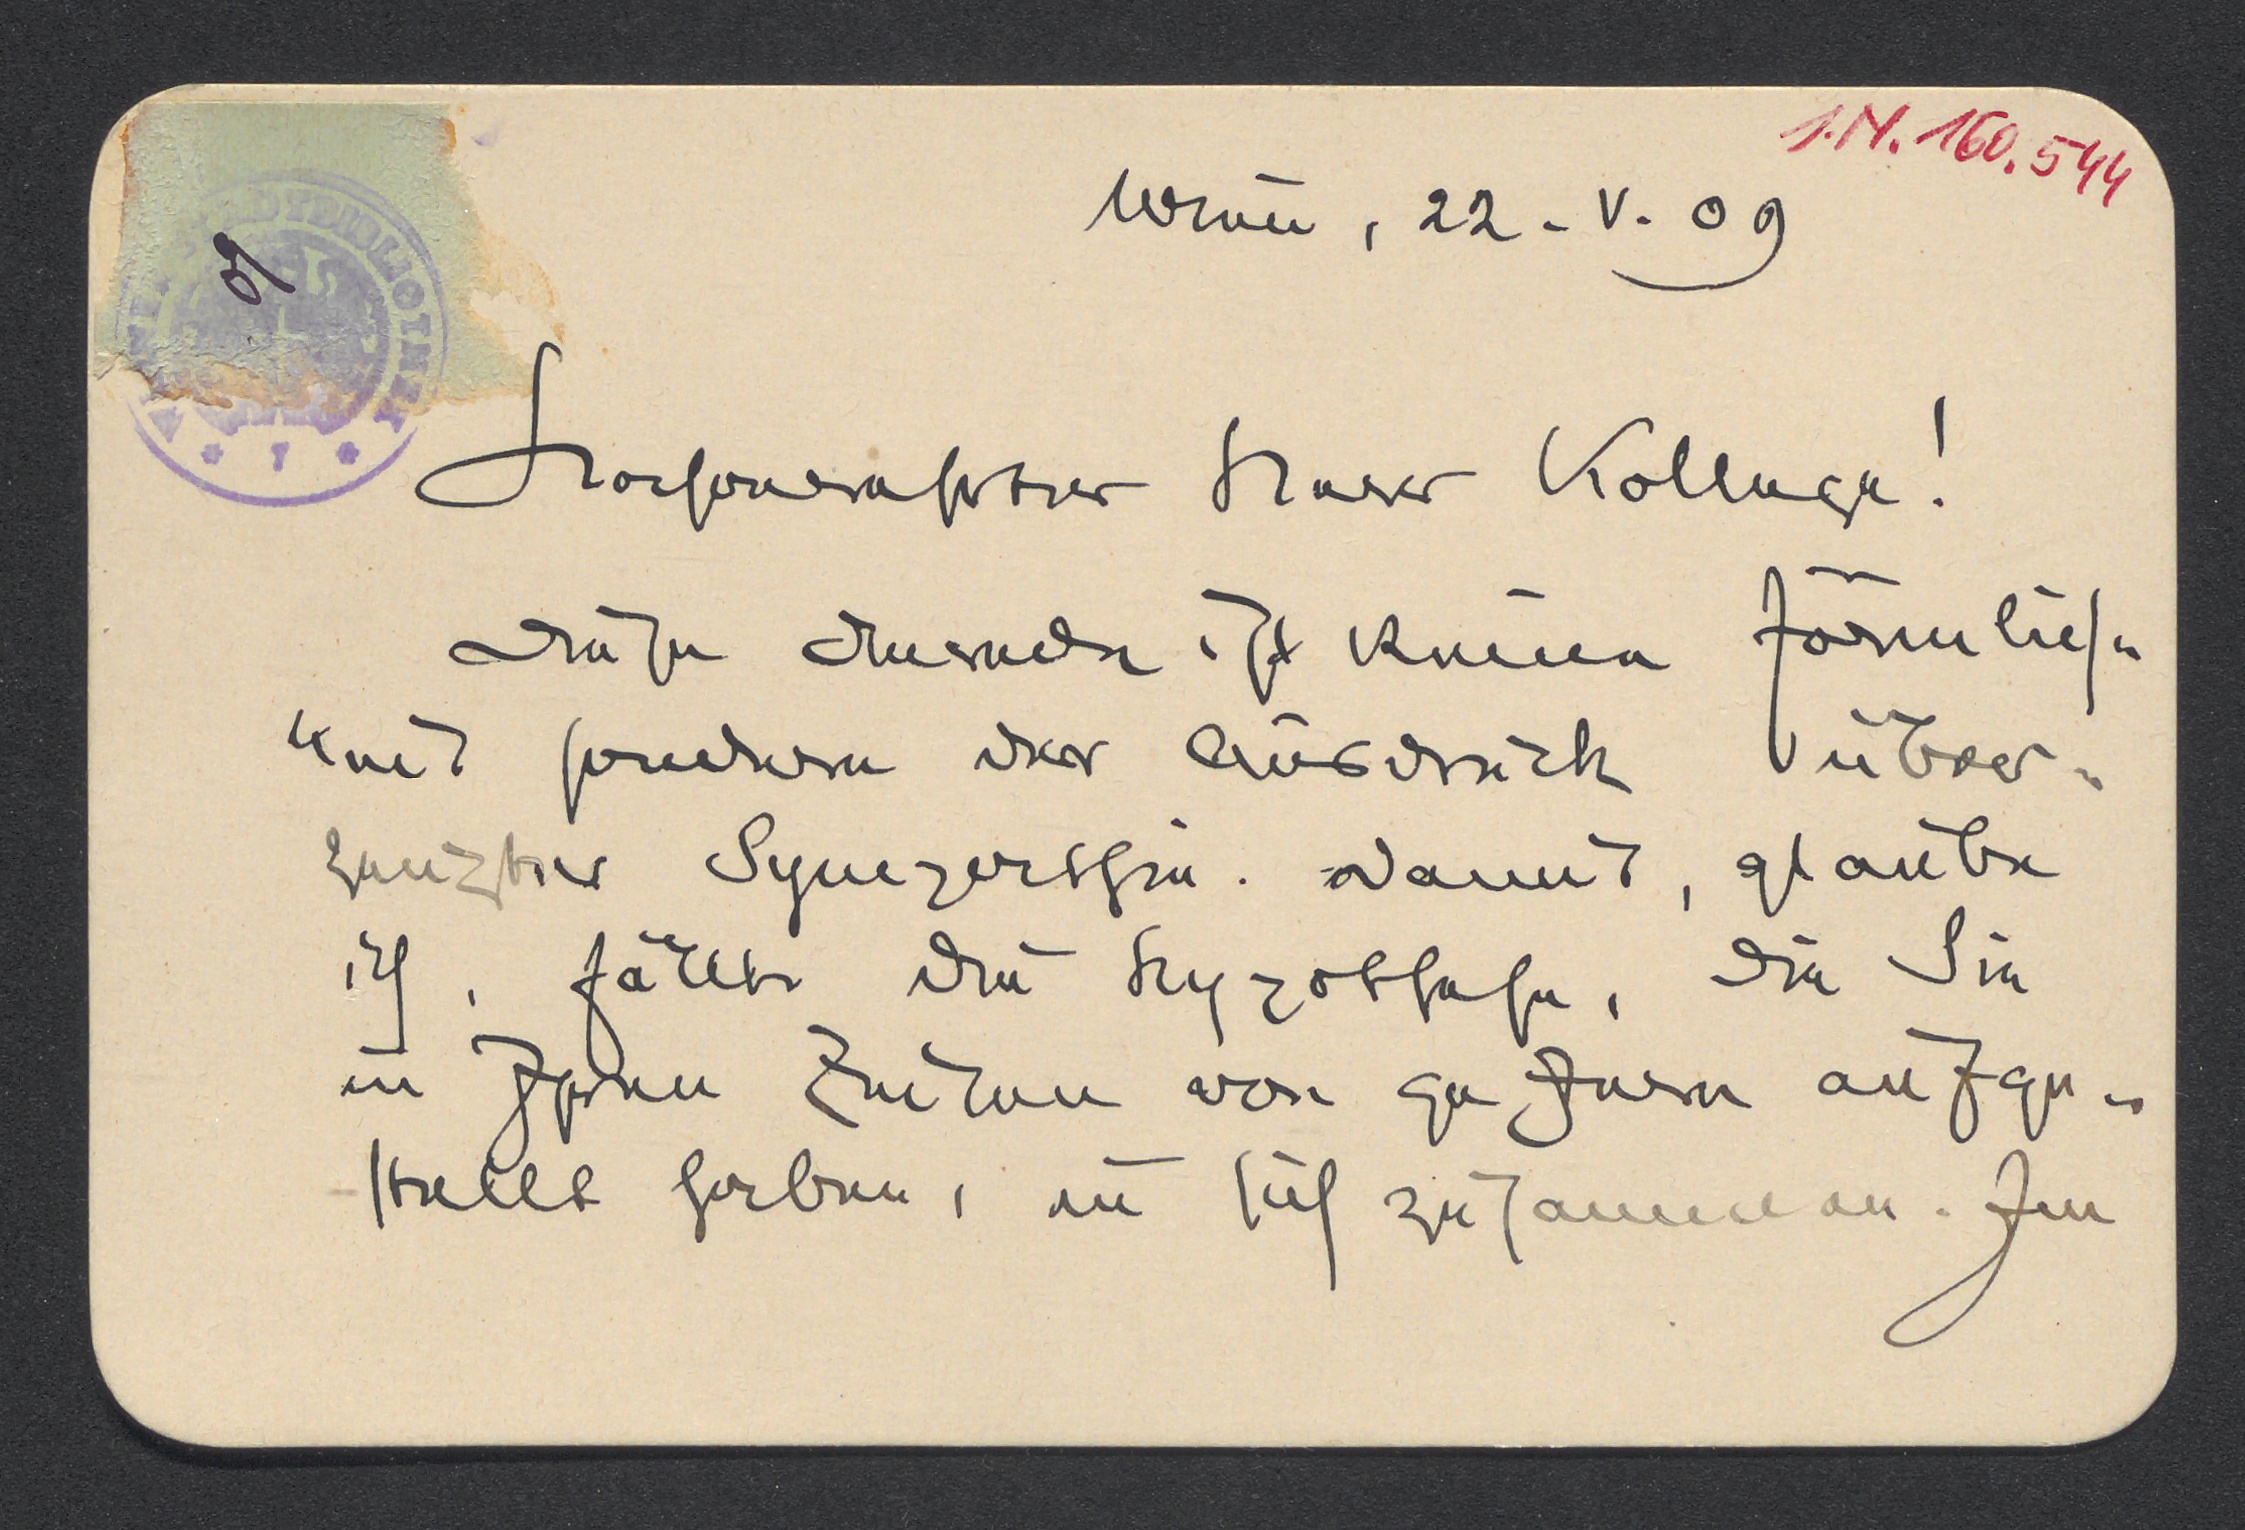 I.N. 160.544
Wien, 22. V. 09
Hochverehrter Herr Kollege!
diese Anrede ist keine Förmlich-
keit sondern der Ausdruck über-
zeugter Sympathie. Damit, glaube
ich, fällt die Hypothese, die Sie
in Ihren Zeilen von gestern aufge-
stellt haben, in sich zusammen. Im